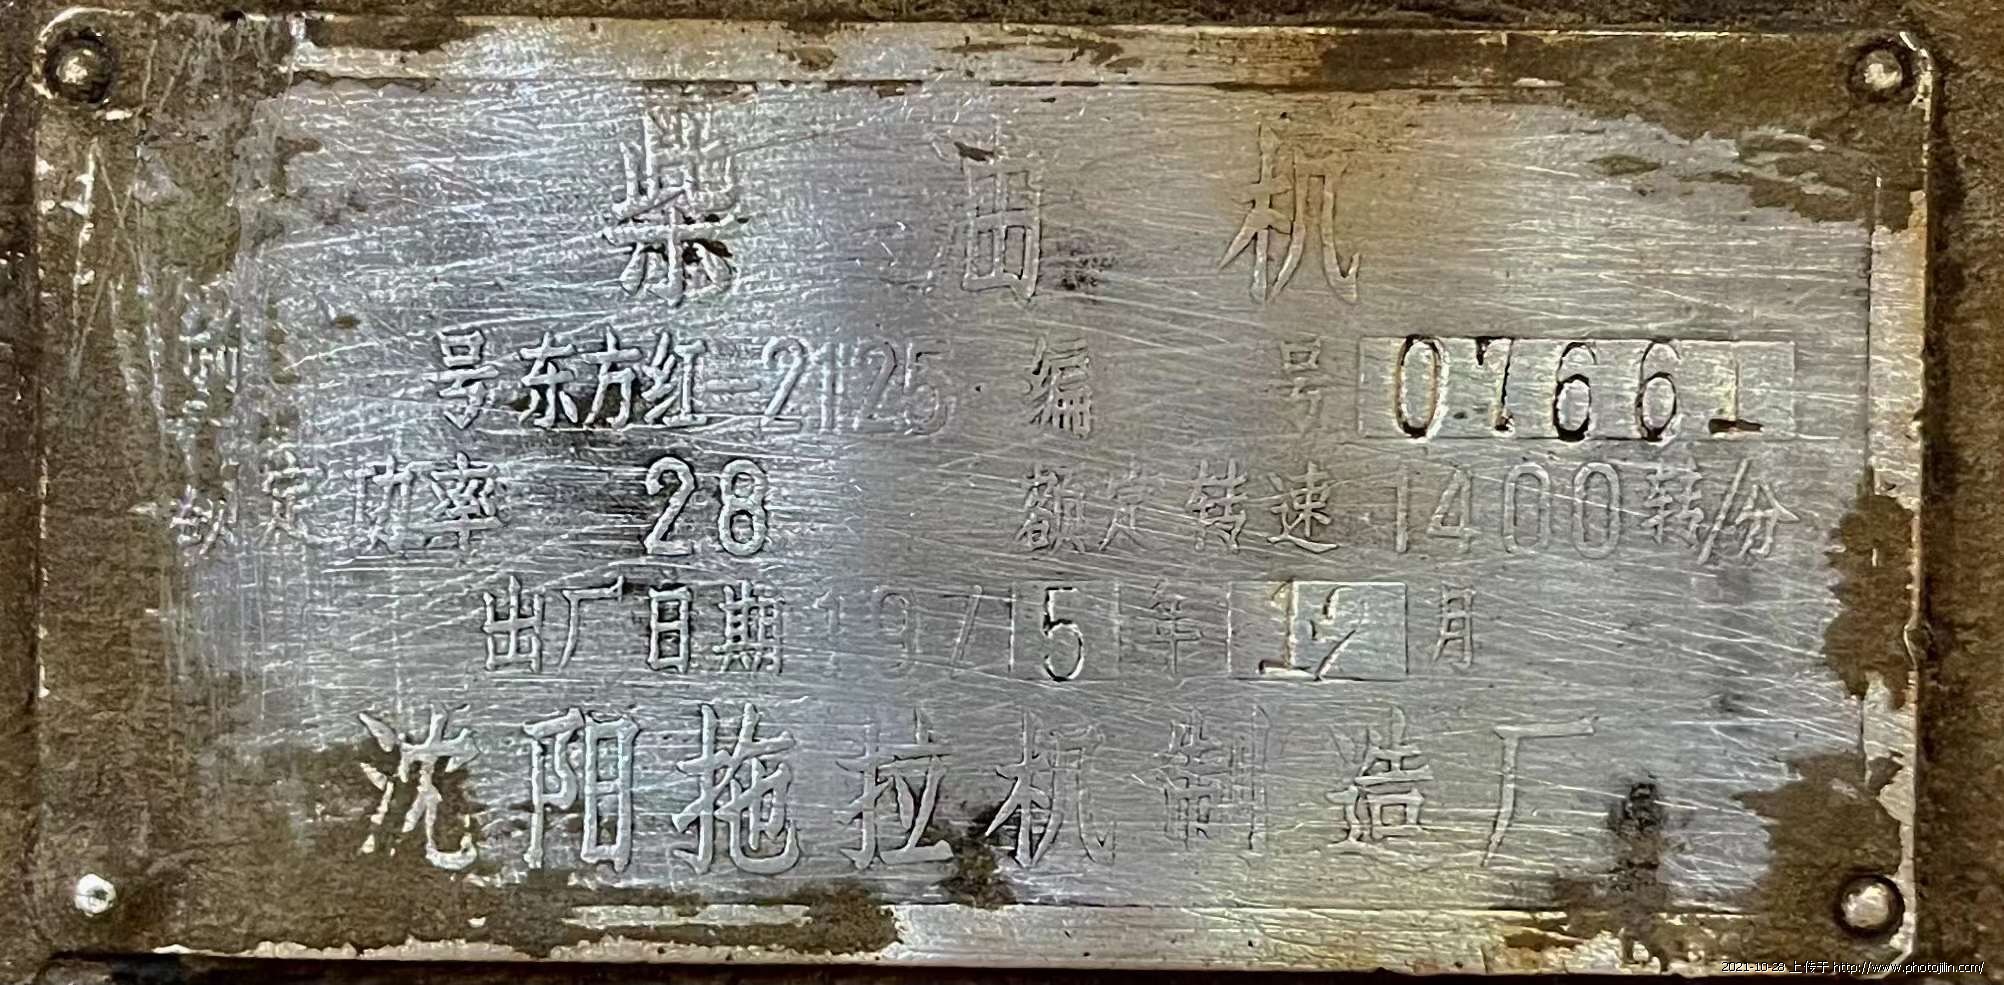 柴油机
型号东方红-2125 编号 07661
额定功率 28 额定转速 1400转/分
出厂日期 1975年12月
沈阳拖拉机制造厂
2021-10-28 上传于 http://www.photojilin.com/